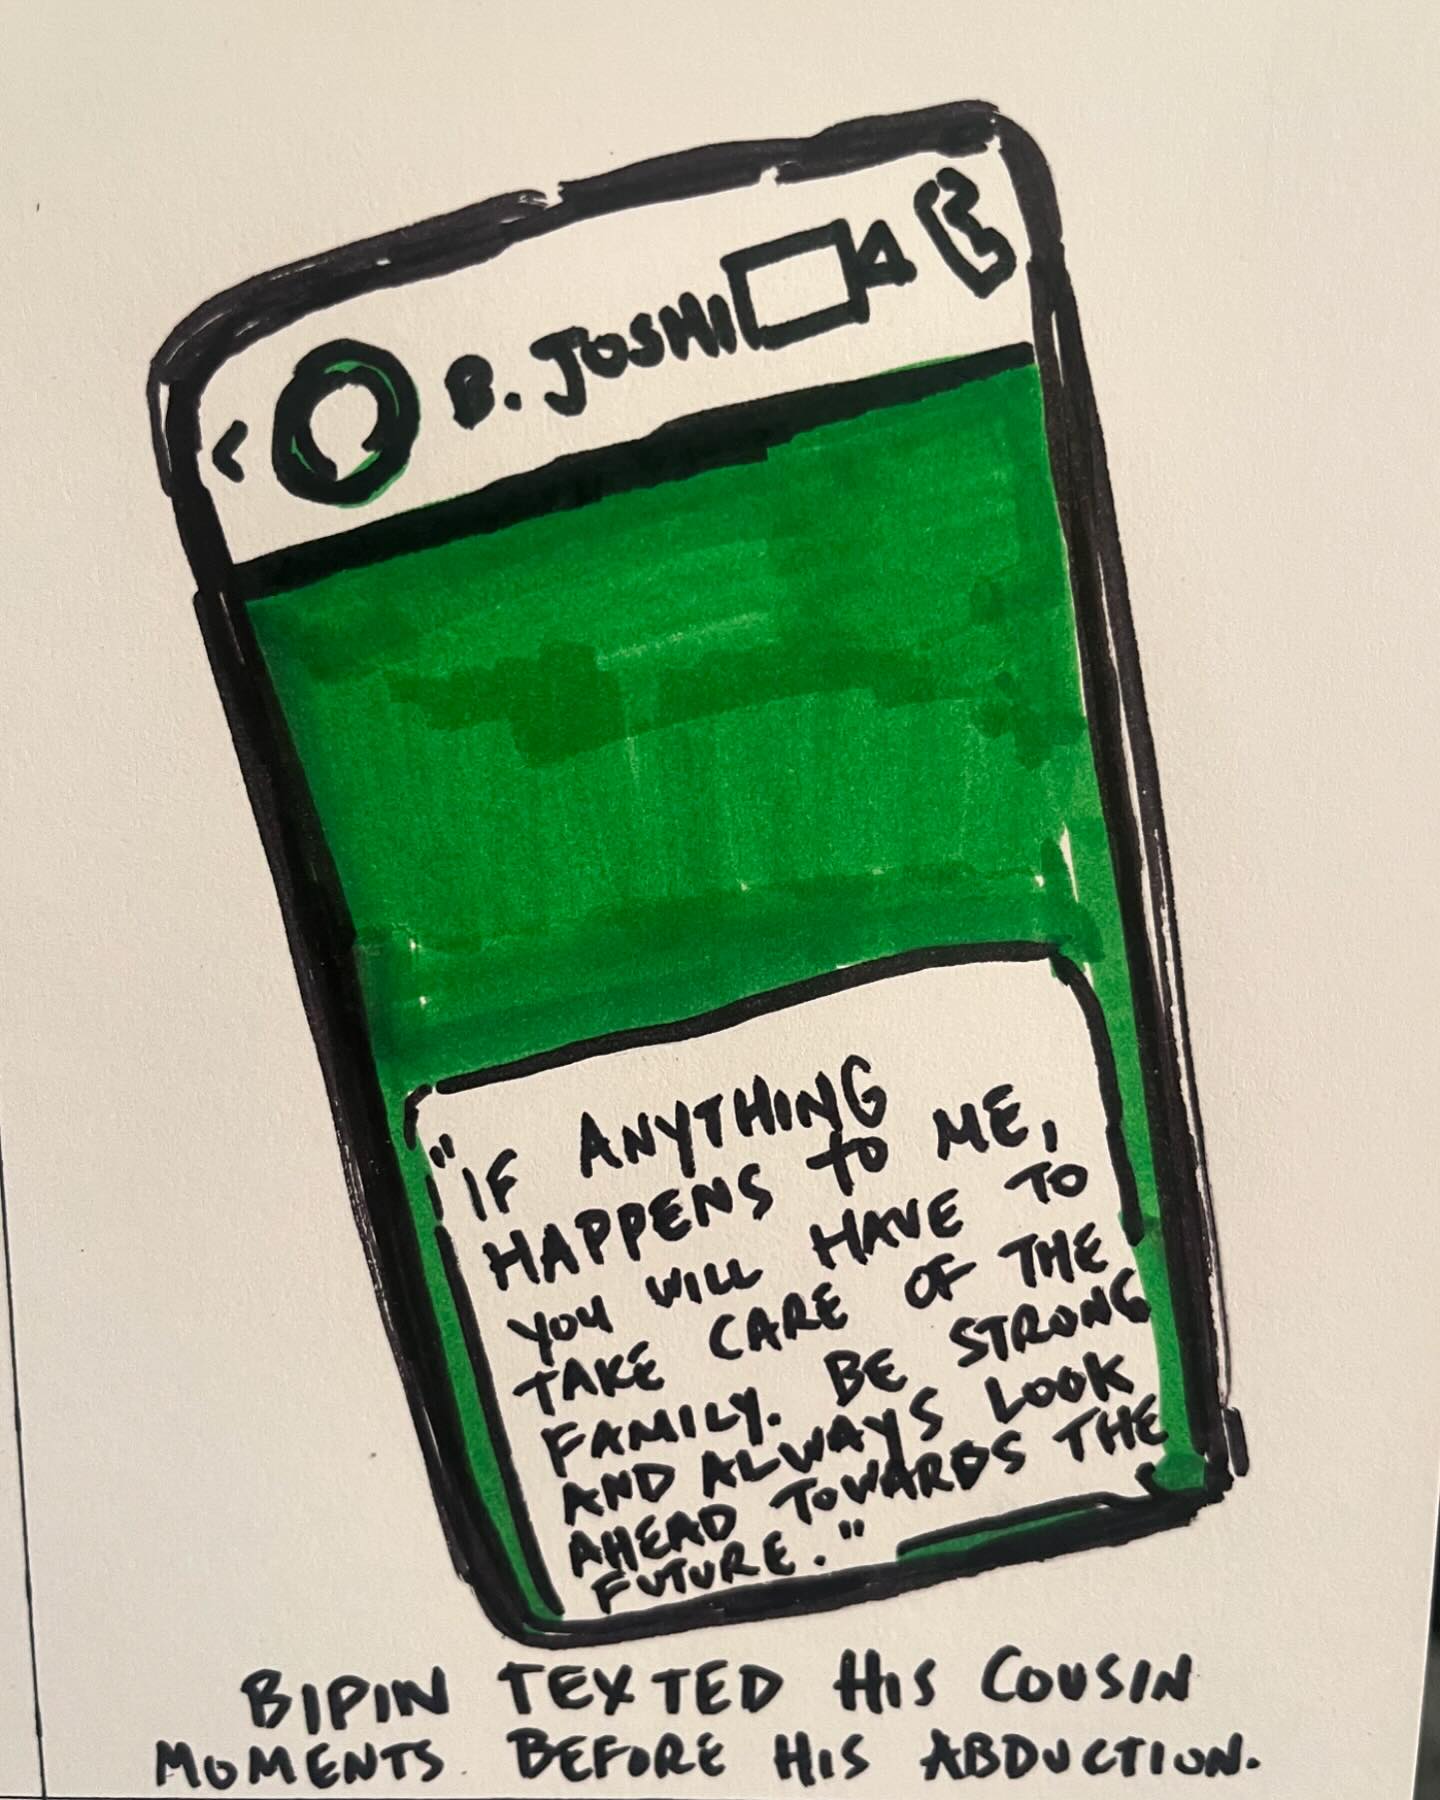 < B. JOSHI
"IF ANYTHING
HAPPENS TO ME,
YOU WILL HAVE TO
TAKE CARE OF THE
FAMILY. BE STRONG
AND ALWAYS LOOK
AHEAD TOWARDS THE
FUTURE."
BIPIN TEXTED HIS COUSIN
MOMENTS BEFORE HIS ABDUCTION.